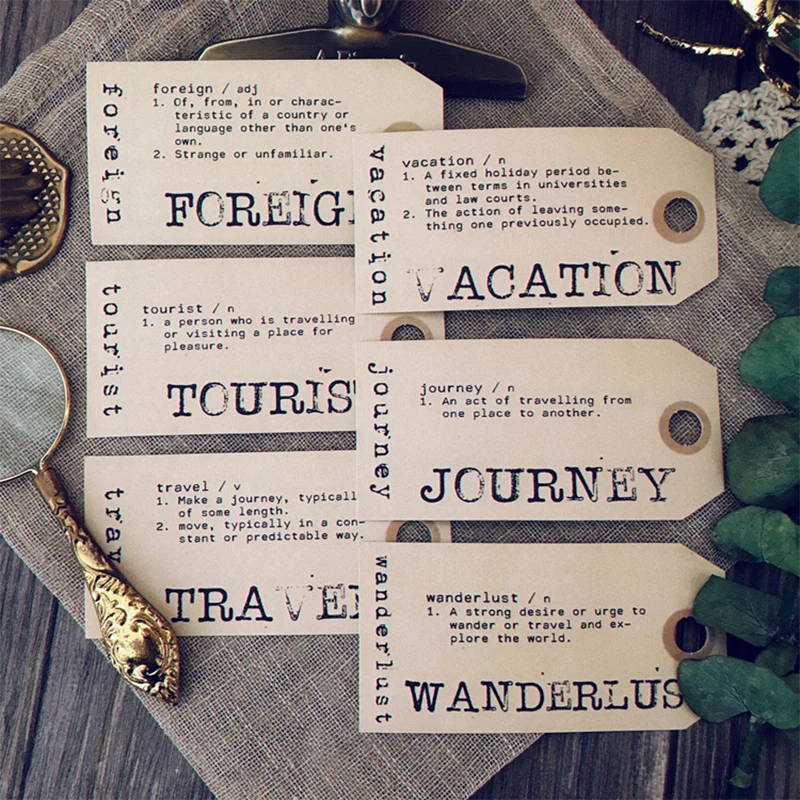 foreign
foreign / adj
1. Of, from, in or charac-
teristic of a country or
language other than one's
own.
2. Strange or unfamiliar.
FOREIG
vacation
vacation / n
1. A fixed holiday period be-
tween terms in universities
and law courts.
2. The action of leaving some-
thing one previously occupied.
VACATION
tourist
tourist / n
1. a person who is travelling
or visiting a place for
pleasure.
TOURIS
journey
journey / n
1. An act of travelling from
one place to another.
JOURNEY
trav
travel / v
1. Make a journey, typicall
of some length.
2. move, typically in a con-
stant or predictable way.
TRAVE
wanderlust
wanderlust / n
1. A strong desire or urge to
wander or travel and ex-
plore the world.
WANDERLUS